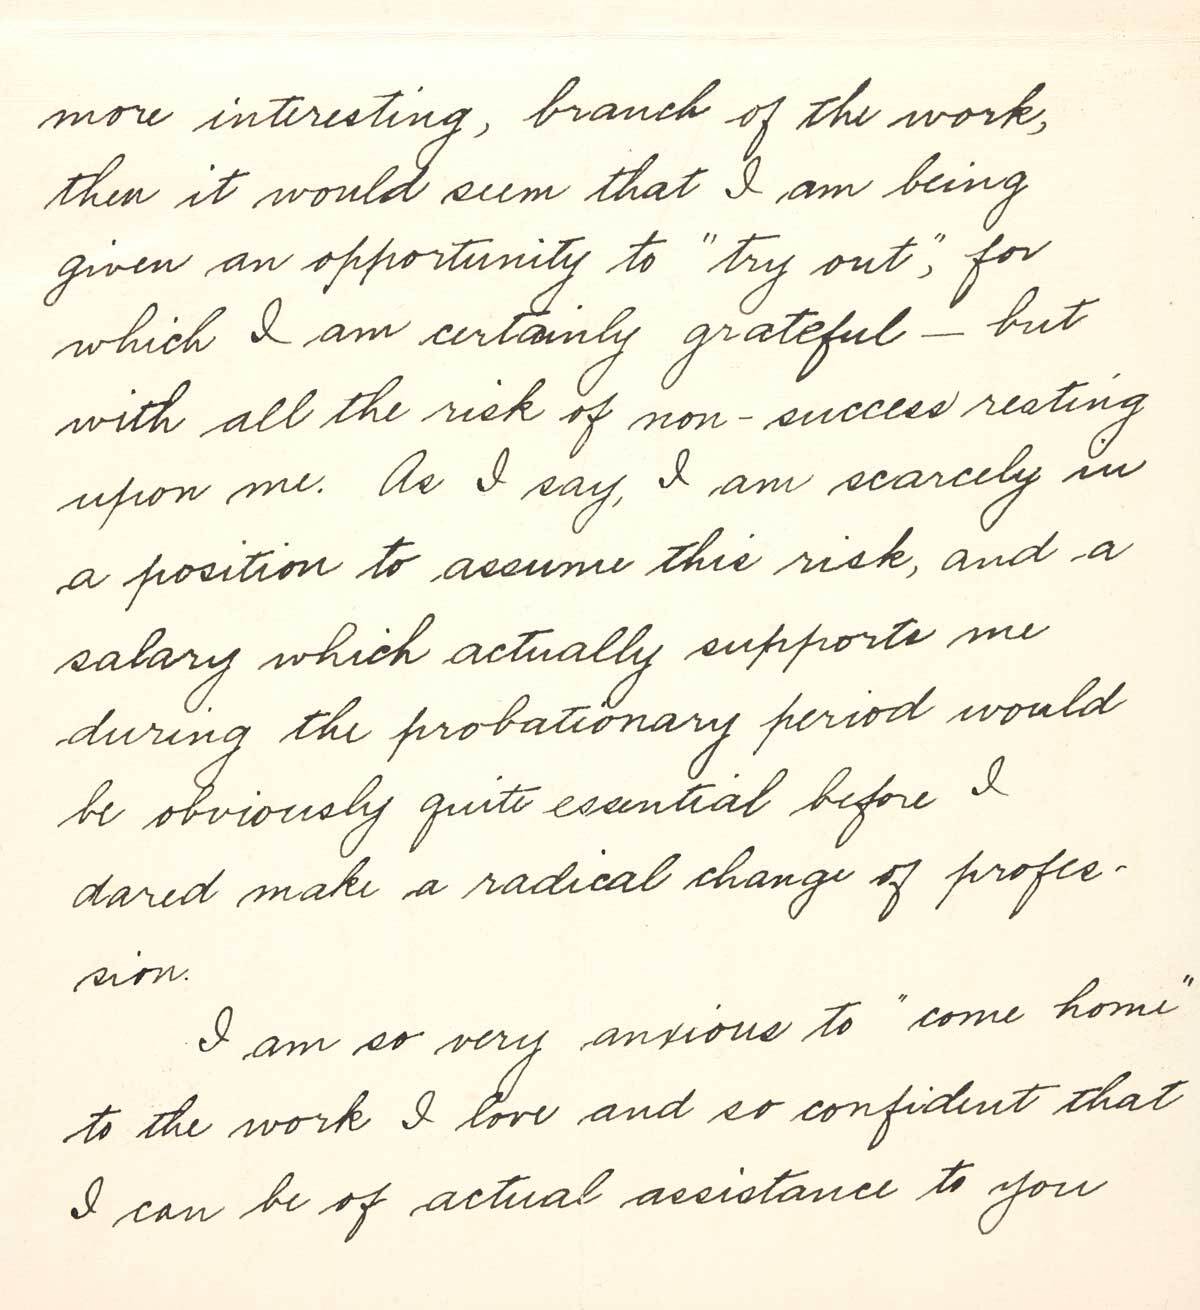 more interesting, branch of the work,
then it would seem that I am being
given an opportunity to "try out", for
which I am certainly grateful — but
with all the risk of non-success resting
upon me. As I say, I am scarcely in
a position to assume this risk, and a
salary which actually supports me
during the probationary period would
be obviously quite essential before I
dared make a radical change of profes-
sion.
I am so very anxious to "come home"
to the work I love and so confident that
I can be of actual assistance to you